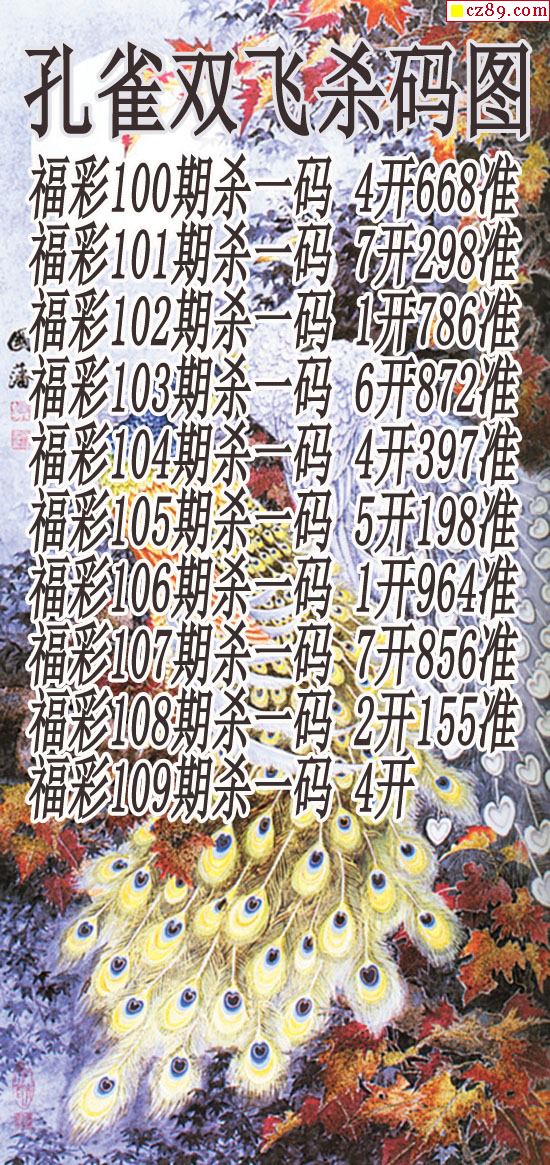 cz89.com
孔雀双飞杀码图
福彩100期杀一码 4开668准
福彩101期杀一码 7开298准
福彩102期杀一码 1开786准
福彩103期杀一码 6开872准
福彩104期杀一码 4开397准
福彩105期杀一码 5开198准
福彩106期杀一码 1开964准
福彩107期杀一码 7开856准
福彩108期杀一码 2开155准
福彩109期杀一码 4开